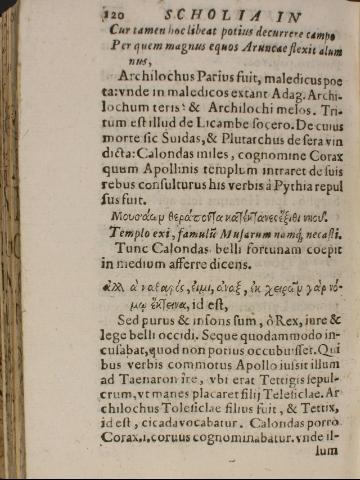 120 SCHOLIA IN
Cur tamen hoc libeat potius decurrere campo
Per quem magnus equos Aruncae flexit alum
nus,
Archilochus Parius fuit, maledicus poe
ta: vnde in maledicos extant Adag. Archi-
lochum teris: & Archilochi melos. Tri-
tum est illud de Licambe socero. De cuius
morte sic Suidas, & Plutarchus de sera vin
dicta: Calondas miles, cognomine Corax
quum Apollinis templum intraret de suis
rebus consulturus his verbis à Pythia repul
sus fuit.
Μουσάων θεράποντα κατέκτανες ἔξιθι νηοῦ.
Templo exi, famulũ Musarum namq́, necasti.
Tunc Calondas belli fortunam coepit
in medium afferre dicens.
ἀλλ' ἀναξ, ἐκ χειρῶν γὰρ νό-
μῳ ἔκτεινα, id est,
Sed purus & insons sum, ô Rex, iure &
lege belli occidi. Seque quodammodo in-
cusabat, quod non potius occubuisset. Qui
bus verbis commotus Apollo iussit illum
ad Taenaron ire, vbi erat Tettigis sepul-
crum, vt manes placaret filij Telesiclae. Ar
chilochus Tolesiclae filius fuit, & Tettix,
id est, cicada vocabatur. Calondas porro
Corax, i. coruus cognominabatur. vnde il-
lum